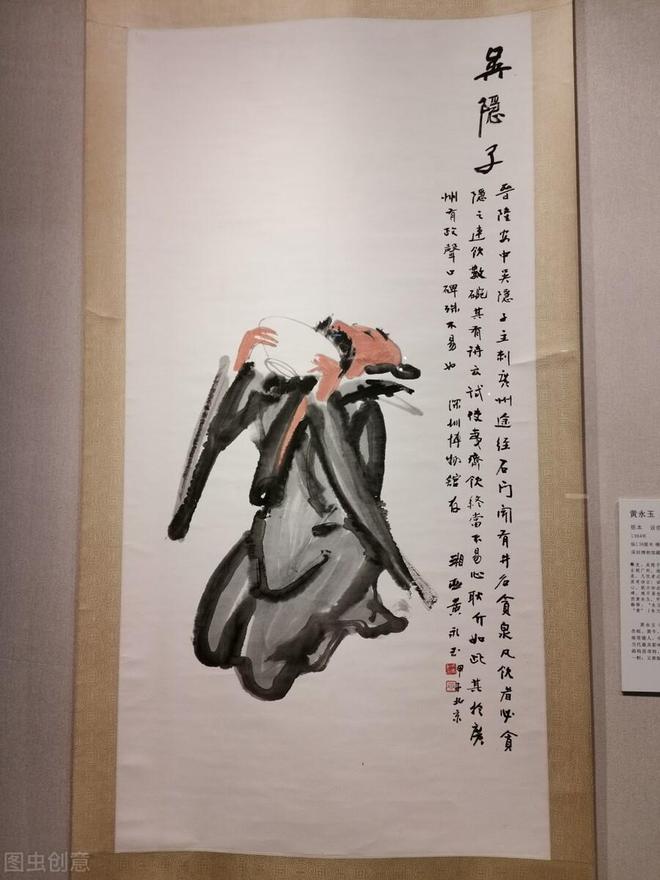 吳隱子
晉隆安中吳隱子主刺廣州途经石门闻有井名貪泉凡饮者必貪
隱之連饮數碗其有诗云试使夷齊饮终當不易心耿介如此其於廣
州有政聲口碑殊不易也 深圳博物館存
湘西黄永玉甲子北京
黄永玉
纸本
1984年
图虫创意